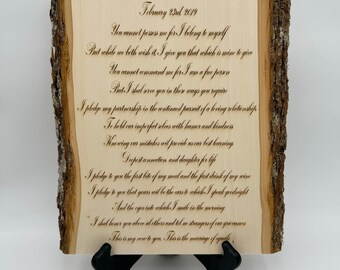 February 23rd, 2019
You cannot possess me for I belong to myself
But while we both wish it, I give you that which is mine to give
You cannot command me for I am a free person
But I shall serve you in those ways you require
I pledge my partnership in the continued pursuit of a loving relationship
To hold our imperfect selves with humor and kindness
Knowing our mistakes will provide us our best learning
Deepest connection and laughter for life
I pledge to you the first bite of my meal and the first drink of my wine
I pledge to you that yours will be the ears to which I speak goodnight
And the eyes into which I smile in the morning
I shall honor you above all others and tell no strangers of our grievances
This is my vow to you. This is the marriage of equals